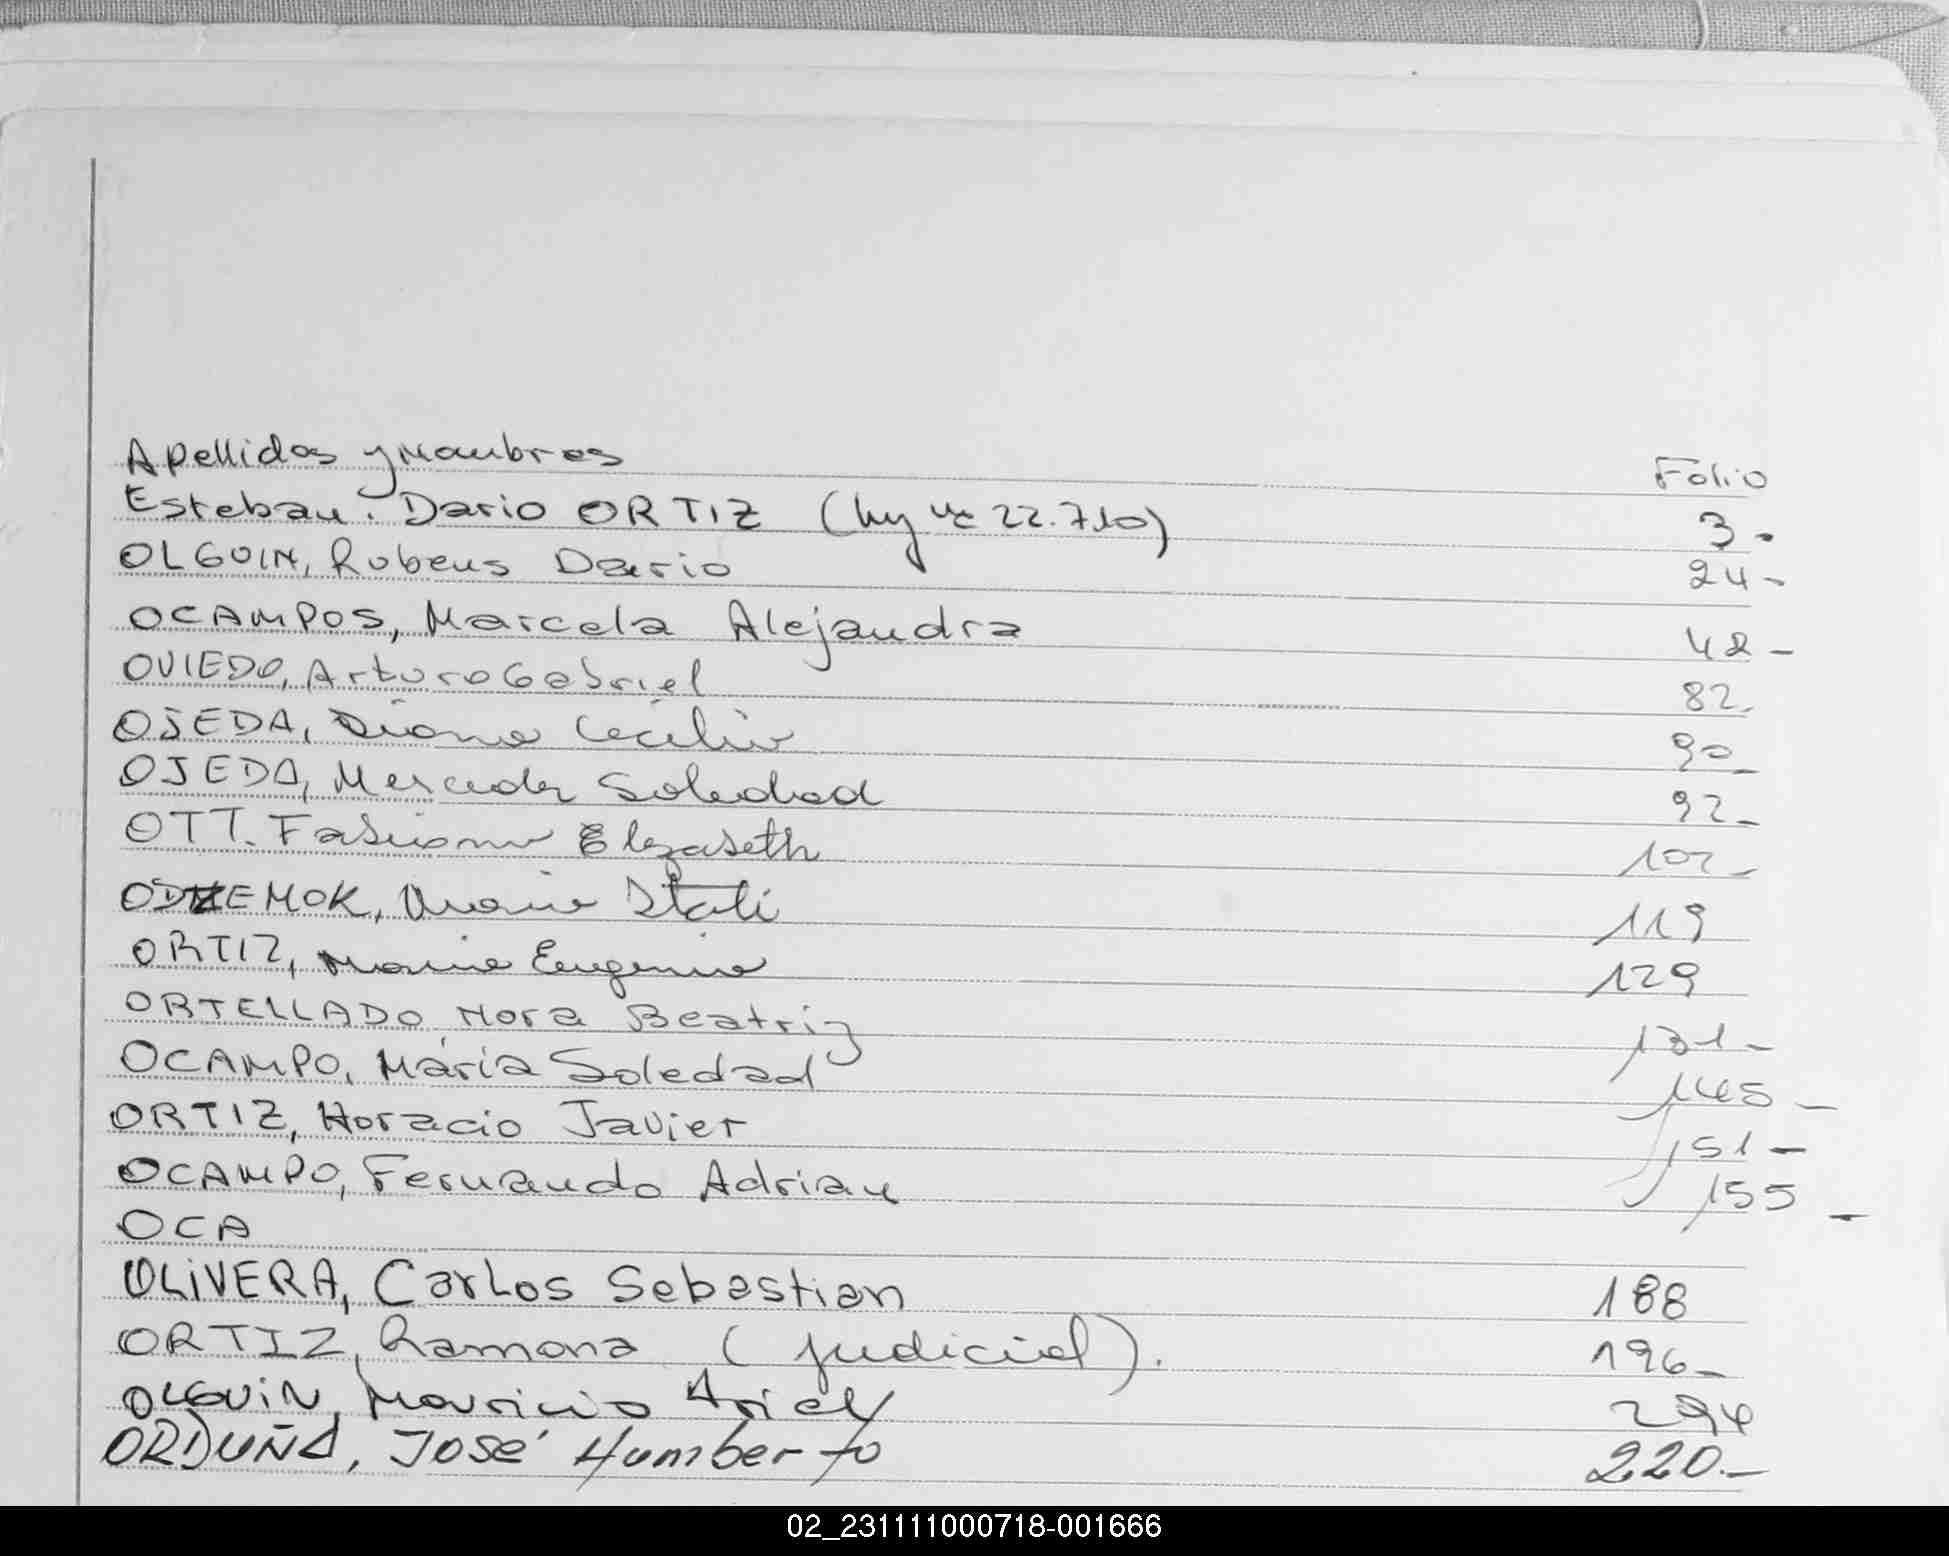 Apellidos y Nombres Folio
Esteban Dario ORTIZ (Ley Nº 22.710) 3.
OLGUIN, Rubens Dario 24-
OCAMPOS, Marcela Alejandra 48-
OVIEDO, Arturo Gabriel 82-
OJEDA, Diana Cecilia 90-
OJEDA, Mercedes Soledad 92-
OTT. Fabiana Elizabeth 102-
ODZEMOK, Maria Itati 119
ORTIZ, Maria Eugenia 129
ORTELLADO Nora Beatriz 131-
OCAMPO, María Soledad 145-
ORTIZ, Horacio Javier 151-
OCAMPO, Fernando Adrian 155-
OCA
OLIVERA, Carlos Sebastian 188
ORTIZ, Ramona (judicial). 196-
OLGUIN, Mauricio Ariel 294
ORDUÑA, José Humberto 220.-
02_231111000718-001666